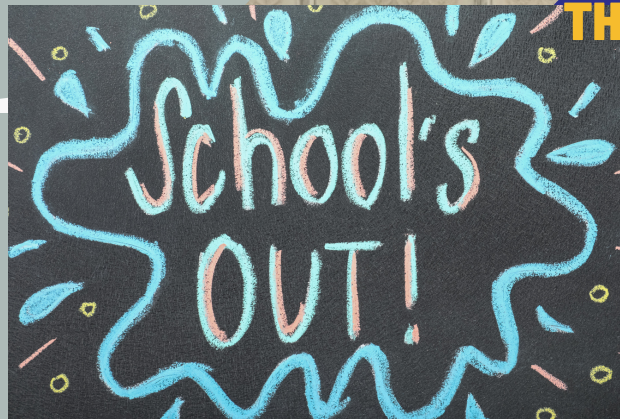 TH
School's
OUT!